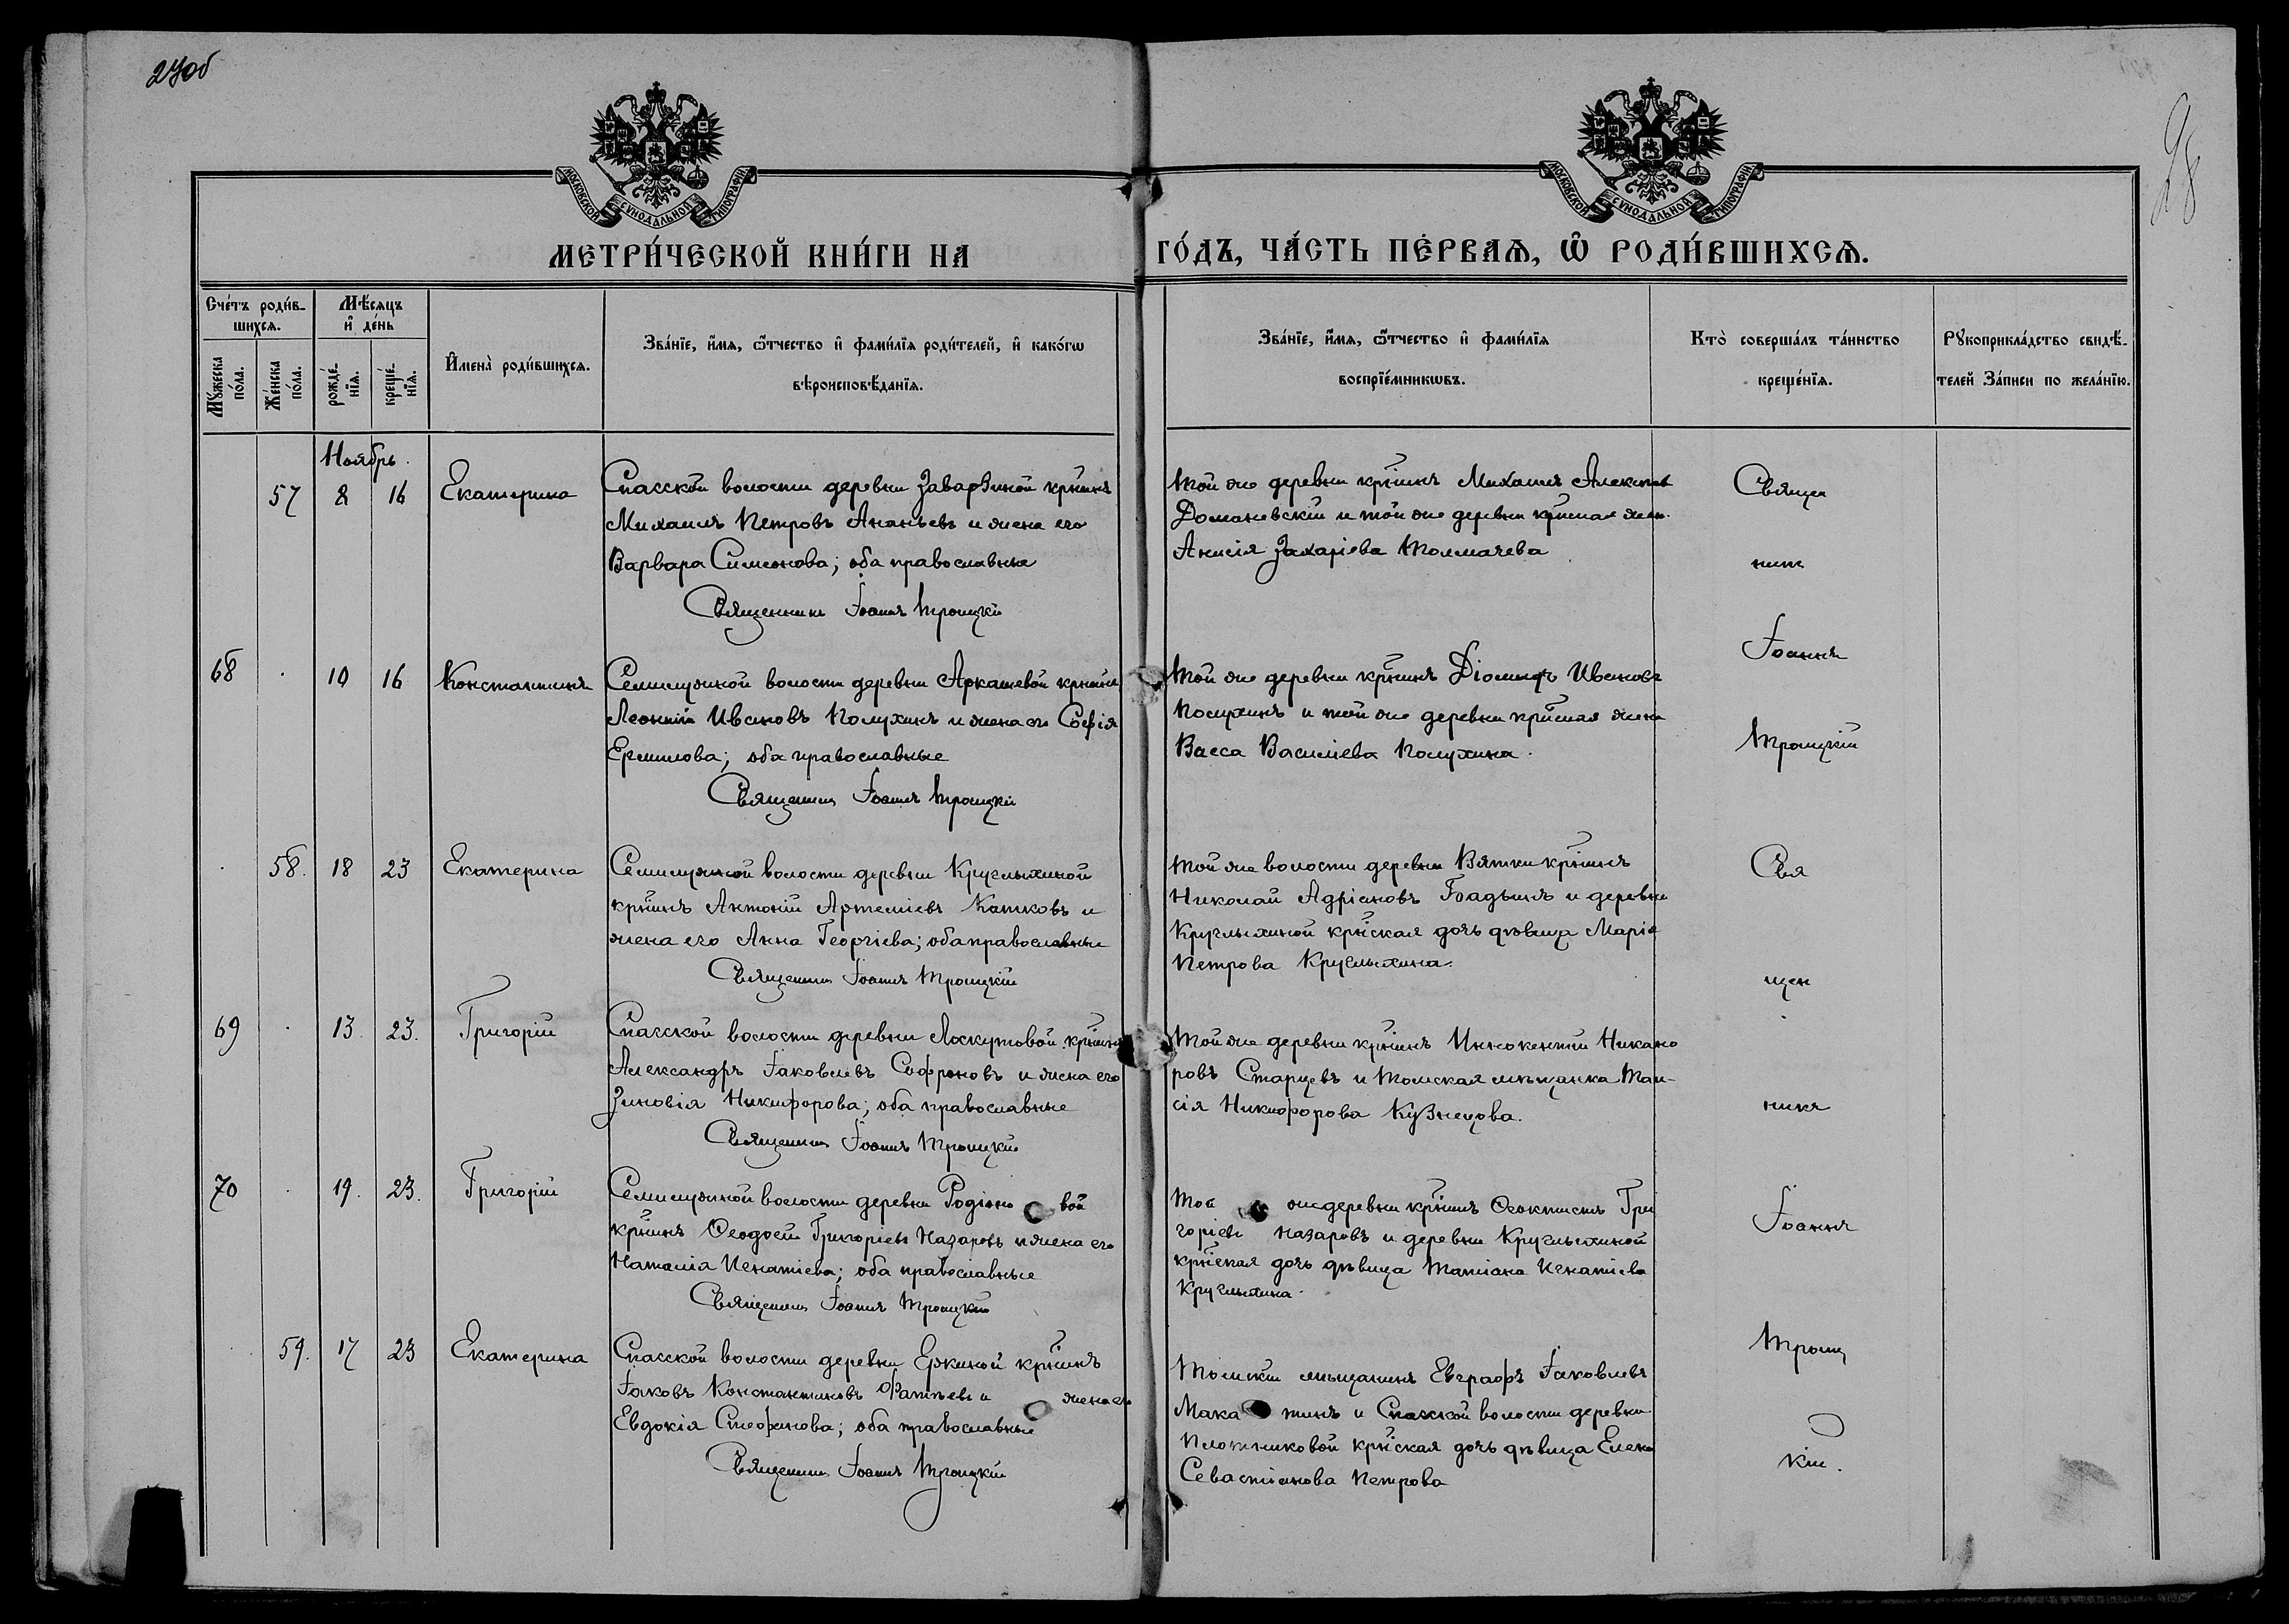 27об
28
МОСКОВСКОЙ СѴНОДАЛЬНОЙ ТИПОГРАФІИ
МОСКОВСКОЙ СѴНОДАЛЬНОЙ ТИПОГРАФІИ
МЕТРИ́ЧЕСКОЙ КНИ́ГИ НА ГО́ДЪ, ЧА́СТЬ ПЕ́РВАѦ, Ѿ РОДИ́ВШИХСѦ.
Сче́тъ роди́в-
шихсѧ.
Мѣ́сѧцъ
и҆ де́нь
Мꙋ́жеска
по́ла.
Же́нска
по́ла.
рожде́-
нїѧ.
креще́-
нїѧ.
И҆мена̀ роди́вшихсѧ.
Зва́нїе, и҆́мѧ, ѻ҆́тчество и҆ фами́лїѧ роди́телей, и҆ како́гѡ
вѣроисповѣ́данїѧ.
Зва́нїе, и҆́мѧ, ѻ҆́тчество и҆ фами́лїѧ
воспрїе́мникѡвъ.
Кто̀ соверша́лъ та́инство
креще́нїѧ.
Рꙋкоприкла́дство свидѣ́-
телей за́писи по жела́нїю.
Ноябрь.
57 8 16 Екатерина
Спасской волости деревни Заварзиной кр̃нинъ
Михаилъ Петровъ Ананьевъ и жена его
Варвара Симеонова; оба православные
Священникъ Іоаннъ Троицкій
Той же деревни кр̃нинъ Михаилъ
Домановскій и той же деревни жен.
Анисія Захаріева Толмачева
Священ
никъ
Іоаннъ
Троицкій
68 10 16 Константинъ
Семилужной волости деревни Аркашевой кр̃нинъ
Леонтій Ивановъ Полухинъ и жена его Софія
Ермилова; оба православные
Священникъ Іоаннъ Троицкій
Той же деревни кр̃нинъ Діомидъ Ивановъ
Полухинъ и той же деревни жена
Васса Василіева Полухина.
58. 18 23 Екатерина
Семилужной волости деревни Круглыхиной
кр̃нинъ Антоній Артеміевъ Катковъ и
жена его Анна Георгіева; оба православные
Священникъ Іоаннъ Троицкій
Той же волости деревни Вятки кр̃нинъ
Николай Адріановъ и деревни
Круглыхиной кр̃нская дочь дѣвица Марія
Петрова Круглыхина.
Свя
щен
никъ
Іоаннъ
Троиц
кій.
69 13. 23. Григорій
Спасской волости деревни Лоскутовой кр̃нинъ
Александръ Іаковлевъ Софроновъ и жена его
Зиновія Никифорова; оба православные
Священникъ Іоаннъ Троицкій
Той же деревни кр̃нинъ Иннокентій Никано
ровъ Старцевъ и Томская мѣщанка Таи-
сія Никифорова Кузнецова.
70 19. 23. Григорій
Семилужной волости деревни Родіоновой
кр̃нинъ Ѳеодосій Григоріевъ Назаровъ и жена его
Наталія Игнатіева; оба православные
Священникъ Іоаннъ Троицкій
Той же деревни кр̃нинъ Ѳеоктистъ Гри
горіевъ Назаровъ и деревни Круглыхиной
кр̃нская дочь дѣвица Татіана Игнатіева
Круглыхина.
59. 17 23 Екатерина
Спасской волости деревни Ережной кр̃нинъ
Іаковъ Константиновъ Фатѣевъ и жена его
Евдокія Стефанова; оба православные
Священникъ Іоаннъ Троицкій
Томскій мѣщанинъ Евграфъ Іаковлевъ
и Спасской волости деревни
Плотниковой кр̃нская дочь дѣвица Елена
Севастіанова Петрова